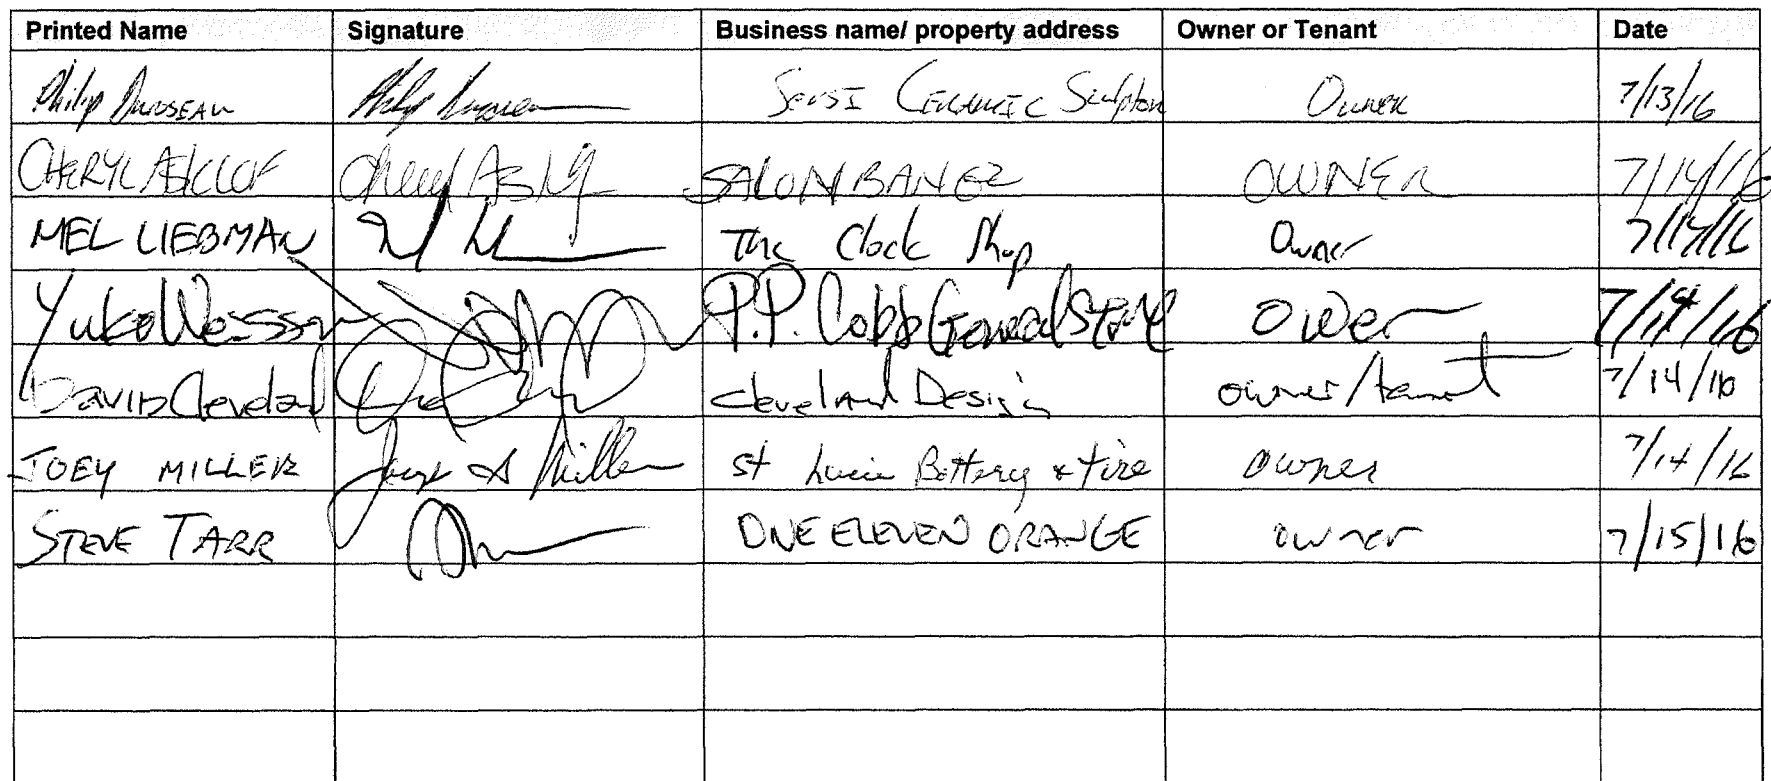 Printed Name Signature Business name/ property address Owner or Tenant Date
Philip Sensi Ceramic Owner 7/13/16
CHERYL SALON BANGZ OWNER 7/14/16
MEL LIEBMAN The Clock Shop Owner 7/14/16
Yuko P.P. Cobb General Store Ower 7/14/16
David Cleveland Cleveland Design owner/tenant 7/14/16
JOEY MILLER Miller St Lucie Battery & tire owner 7/14/16
STEVE TARR ONE ELEVEN ORANGE owner 7/15/16